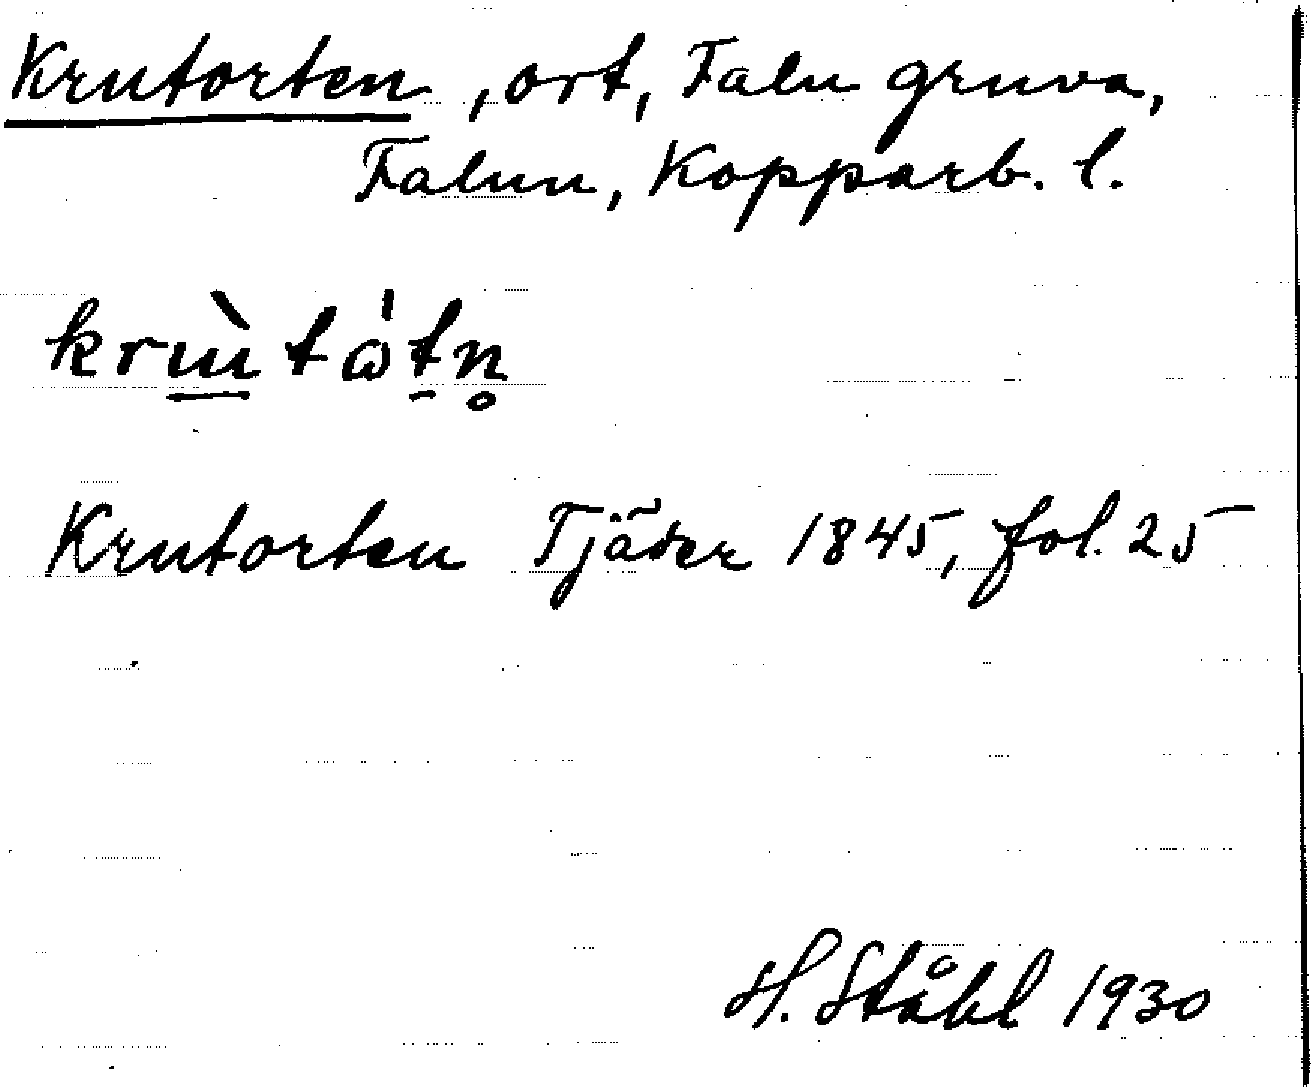 Krutorten, ort, Falu gruva,
Falun, Kopparb. l.
krɯ̲̀tω̍t̠n̥
Krutorten Tjäder 1845, fol. 25
H. Ståhl 1930